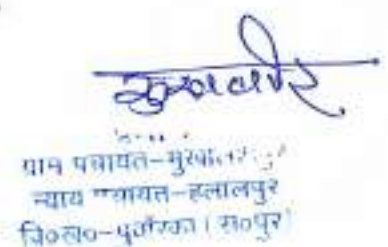 सुखवीर
ग्राम पंचायत-
न्याय पंचायत-हलालपुर
वि०ख०-पुवॉरका (स०पुर)